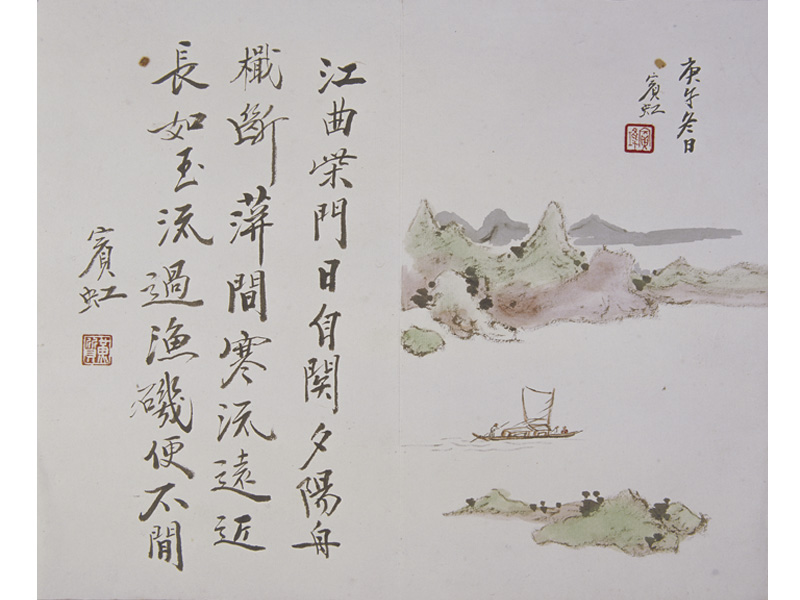 庚午冬日
賓虹
江曲柴門日自関夕陽舟
檝斷萍間寒流遠近
長如玉流過漁磯便不閒
賓虹